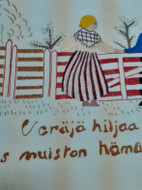 Varaja hiljaa
s muiston häm